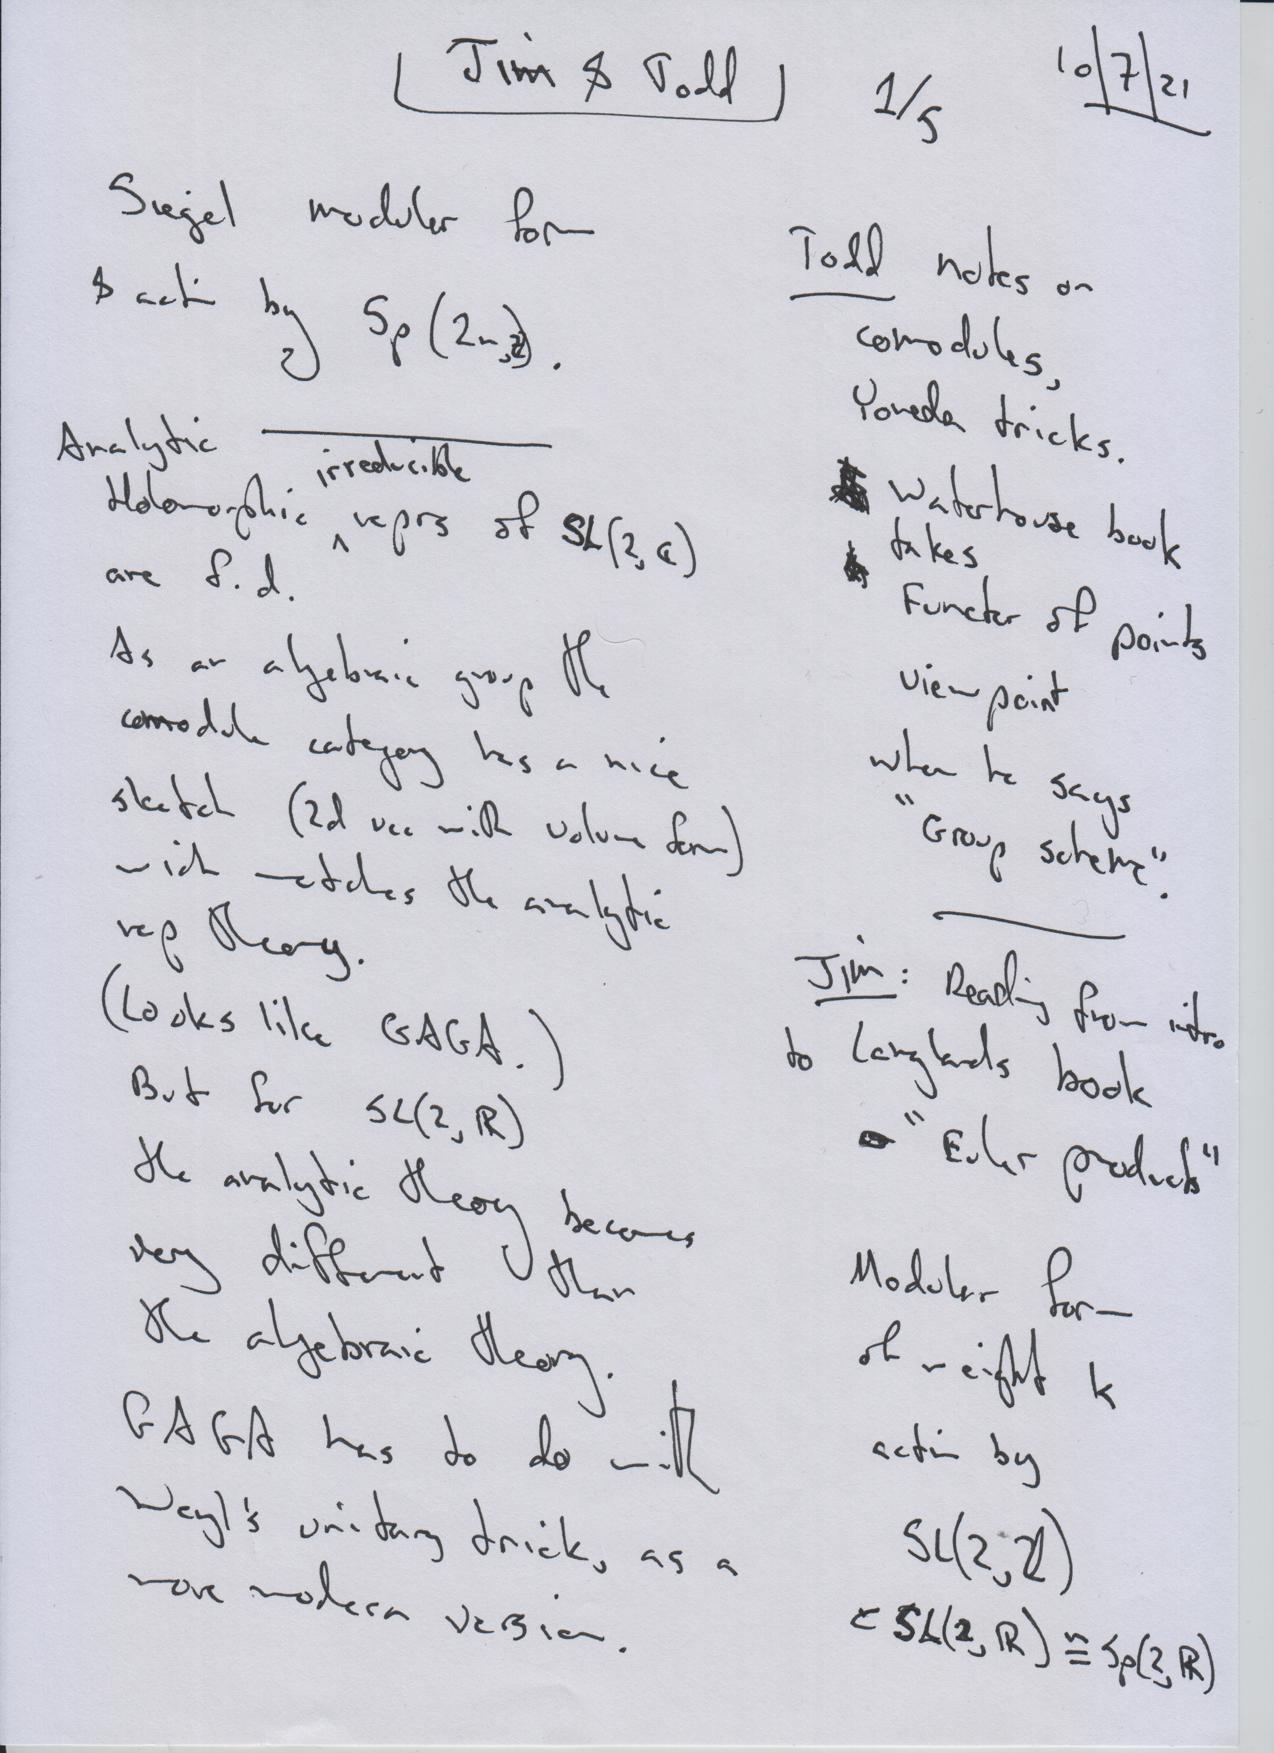 Jim & Todd
1/5
10/7/21
Siegel modular form
& actin by Sp(2n,ℤ).
Analytic
irreducible
Holomorphic ^ reprs of SL(2,ℂ)
are f.d.
As an algebraic group the
comodule category has a nice
sketch (2d vec with volume form)
wich matches the analytic
rep theory.
(Looks like GAGA.)
But for SL(2,ℝ)
the analytic theory becomes
very different than
the algebraic theory.
GAGA has to do with
Weyl's unitary trick, as a
more modern version.
Todd notes on
comodules,
Yoneda tricks.
Waterhouse book
takes
Functor of points
viewpoint
when he says
"Group scheme".
Jim: Reading from intro
to Langlands book
"Euler products"
Modular form
of weight k
actin by
SL(2,ℤ)
⊂ SL(2,ℝ) ≅ Sp(2,ℝ)